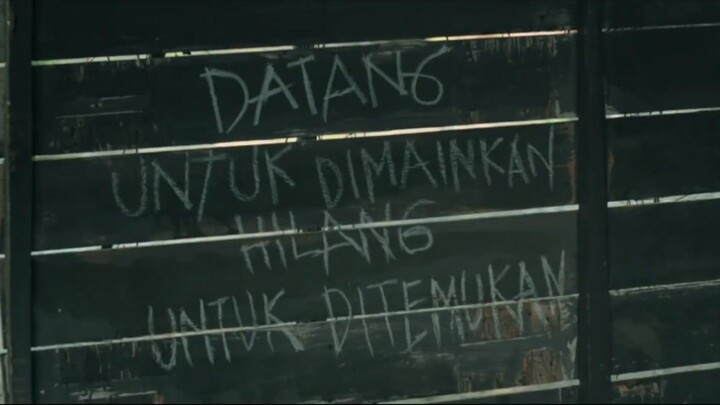 DATANG
UNTUK DIMAINKAN
HILANG
UNTUK DITEMUKAN